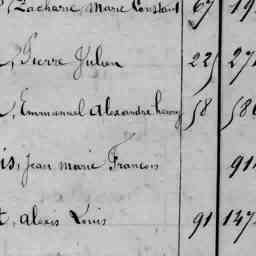 , Zacharie, Marie Constant 67 19
, Pierre Julien 225 27
, Emmanuel Alexandre henry 58 586
is, Jean Marie Francois 91
t, Alexis Louis 91 147